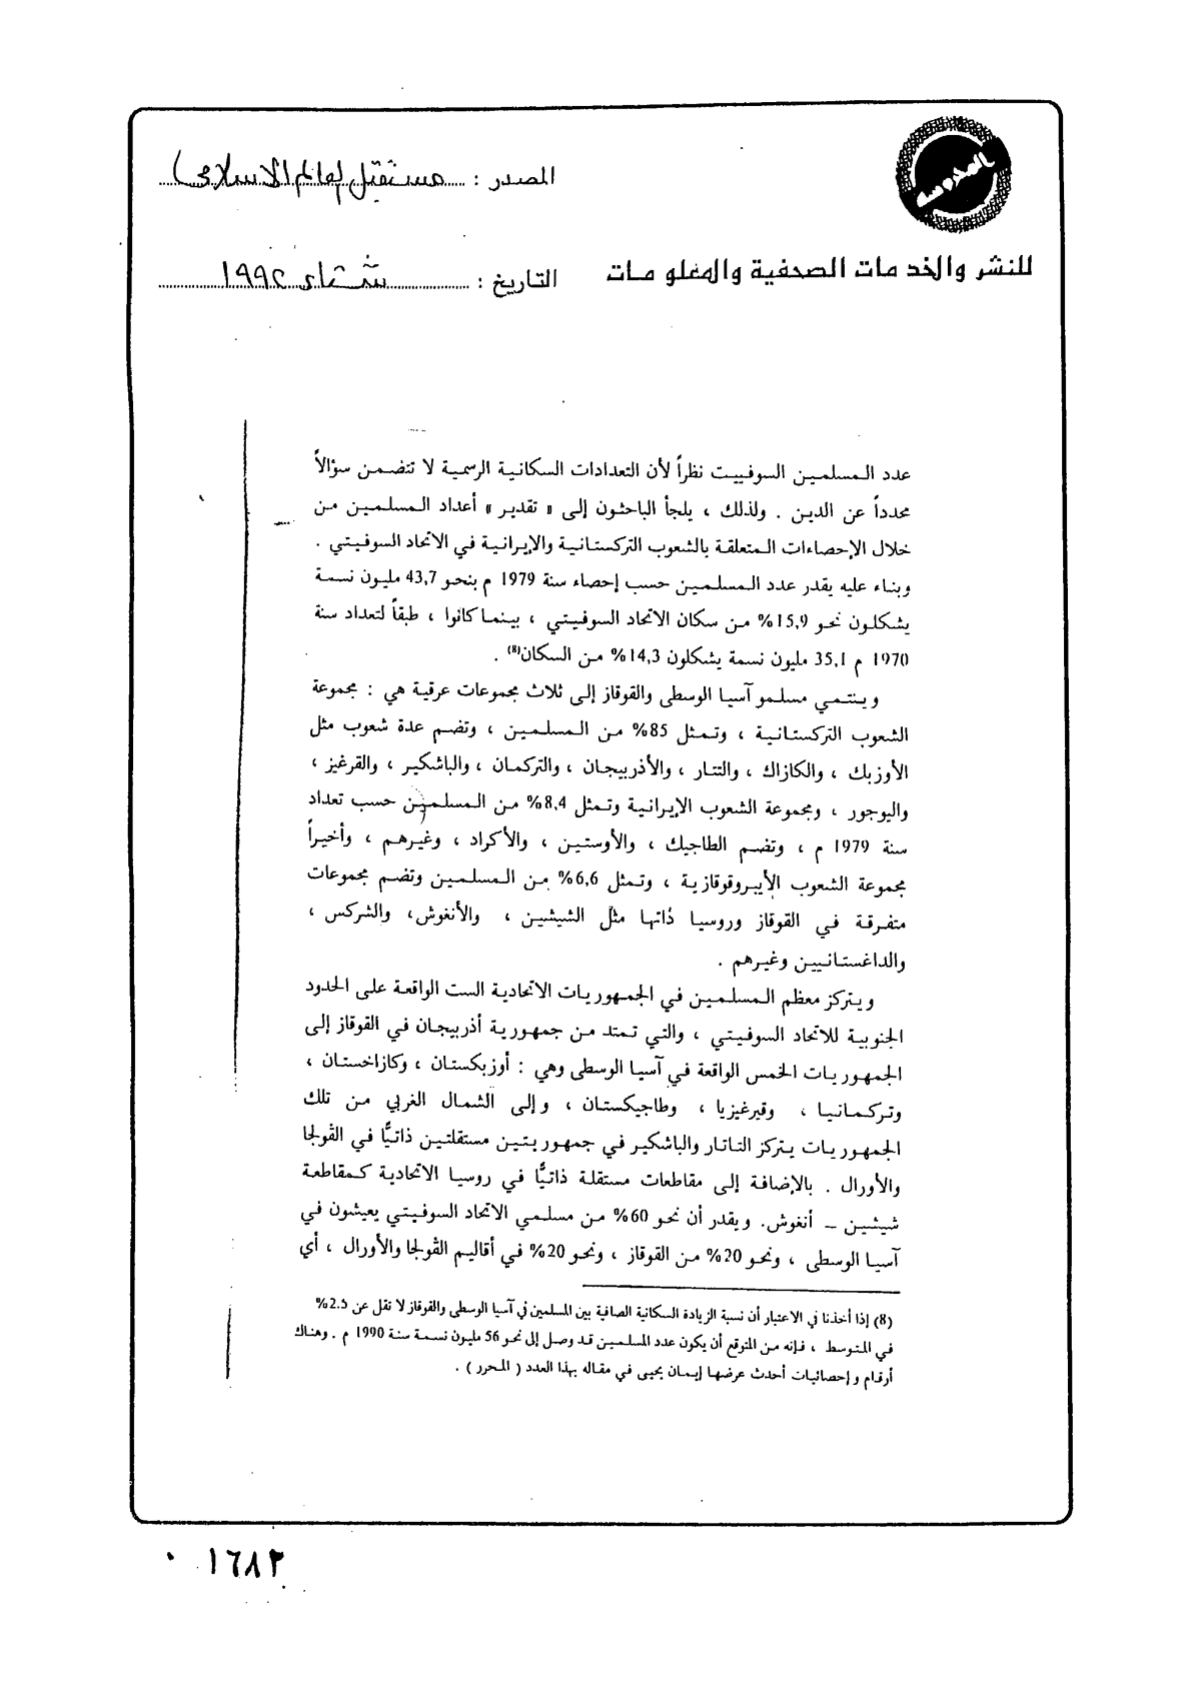 المصدر : مستقبل العالم الاسلامي
للنشر والخدمات الصحفية والمعلومات
التاريخ : شتاء ١٩٩٢
عدد المسلمين السوفييت نظراً لأن التعدادات السكانية الرسمية لا تتضمن سؤالاً
محدداً عن الدين . ولذلك ، يلجأ الباحثون إلى « تقدير » أعداد المسلمين من
خلال الإحصاءات المتعلقة بالشعوب التركستانية والإيرانية في الاتحاد السوفيتي .
وبناء عليه يقدر عدد المسلمين حسب إحصاء سنة 1979 م بنحو 43,7 مليون نسمة
يشكلون نحو 15,9% من سكان الاتحاد السوفيتي ، بينما كانوا ، طبقاً لتعداد سنة
1970 م 35,1 مليون نسمة يشكلون 14,3% من السكان(8) .
وينتمي مسلمو آسيا الوسطى والقوقاز إلى ثلاث مجموعات عرقية هي : مجموعة
الشعوب التركستانية ، وتمثل 85% من المسلمين ، وتضم عدة شعوب مثل
الأوزبك ، والكازاك ، والتتار ، والأذربيجان ، والتركمان ، والباشكير ، والقرغيز ،
واليوجور ، ومجموعة الشعوب الإيرانية وتمثل 8,4% من المسلمين حسب تعداد
سنة 1979 م ، وتضم الطاجيك ، والأوستين ، والأكراد ، وغيرهم ، وأخيراً
مجموعة الشعوب الأيبروقوقازية ، وتمثل 6,6% من المسلمين وتضم مجموعات
متفرقة في القوقاز وروسيا ذاتها مثل الشيشين ، والأنغوش، والشركس ،
والداغستانيين وغيرهم .
ويتركز معظم المسلمين في الجمهوريات الاتحادية الست الواقعة على الحدود
الجنوبية للاتحاد السوفيتي ، والتي تمتد من جمهورية أذربيجان في القوقاز إلى
الجمهوريات الخمس الواقعة في آسيا الوسطى وهي : أوزبكستان ، وكازاخستان ،
وتركمانيا ، وقيرغيزيا ، وطاجيكستان ، وإلى الشمال الغربي من تلك
الجمهوريات يتركز التاتار والباشكير في جمهوريتين مستقلتين ذاتيًّا في الڤولجا
والأورال . بالإضافة إلى مقاطعات مستقلة ذاتيًّا في روسيا الاتحادية كمقاطعة
شيشين – أنغوش. ويقدر أن نحو 60% من مسلمي الاتحاد السوفيتي يعيشون في
آسيا الوسطى ، ونحو 20% من القوقاز ، ونحو 20% في أقاليم الڤولجا والأورال ، أي
(8) إذا أخذنا في الاعتبار أن نسبة الزيادة السكانية الصافية بين المسلمين في آسيا الوسطى والقوقاز لا تقل عن 2.5%
في المتوسط ، فإنه من المتوقع أن يكون عدد المسلمين قد وصل إلى نحو 56 مليون نسمة سنة 1990 م . وهناك
أرقام وإحصائيات أحدث عرضها إيمان يحيى في مقاله بهذا العدد ( المحرر ) .
٠١٦٨٢